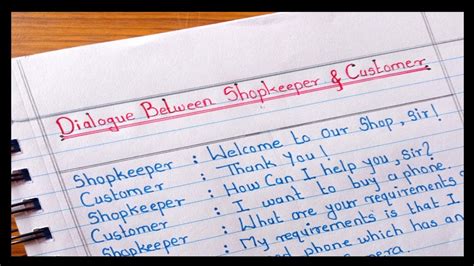 Dialogue Between Shopkeeper & Customer
Shopkeeper : Welcome to our Shop, Sir!
Customer : Thank You!
Shopkeeper : How Can I help you, Sir?
Customer : I want to buy a phone.
Shopkeeper : What are your requirements
: My requirements is that I
phone which has an